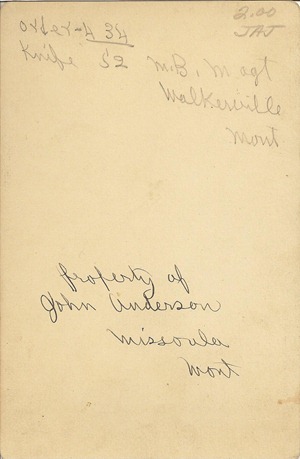 order-4 34
Knife 52
2.00
JAJ
M.B. M agt
Walkerville
Mont
Property of
John Anderson
Missoula
Mont